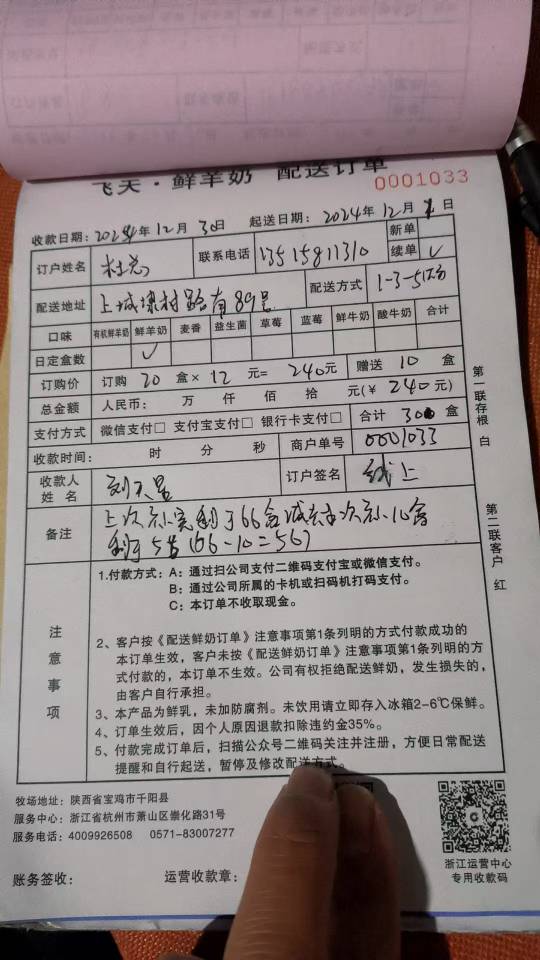 飞天·鲜羊奶 配送订单
0001033
收款日期：2024年12月30日 起送日期：2024年12月 日
订户姓名 联系电话 13515811310 新单 续单 ✓
配送地址 上城 村路 89号 配送方式 1-3-5
口味 有机鲜羊奶 鲜羊奶 麦香 益生菌 草莓 蓝莓 鲜牛奶 酸牛奶 合计
日定盒数 ✓
订购价 订购 20 盒× 12 元= 240元 赠送 10 盒
总金额 人民币： 万 仟 佰 拾 元(￥ 240元)
支付方式 微信支付□ 支付宝支付□ 银行卡支付□ 合计 30 盒
收款时间： 时 分 秒 商户单号 0001033
收款人姓名 订户签名 线上
备注 上次 66盒 10盒
(66-10=56)
1.付款方式：A：通过扫公司支付二维码支付宝或微信支付。
B：通过公司所属的卡机或扫码机打码支付。
C：本订单不收取现金。
注意事项
2、客户按《配送鲜奶订单》注意事项第1条列明的方式付款成功的
本订单生效，客户未按《配送鲜奶订单》注意事项第1条列明的方
式付款的，本订单不生效。公司有权拒绝配送鲜奶，发生损失的，
由客户自行承担。
3、本产品为鲜乳，未加防腐剂。未饮用请立即存入冰箱2-6℃保鲜。
4、订单生效后，因个人原因退款扣除违约金35%。
5、付款完成订单后，扫描公众号二维码关注并注册，方便日常配送
提醒和自行起送，暂停及修改配送方式。
第一联存根 白
第二联客户 红
牧场地址：陕西省宝鸡市千阳县
服务中心：浙江省杭州市萧山区崇化路31号
服务电话：4009926508 0571-83007277
浙江运营中心
专用收款码
账务签收： 运营收款章：